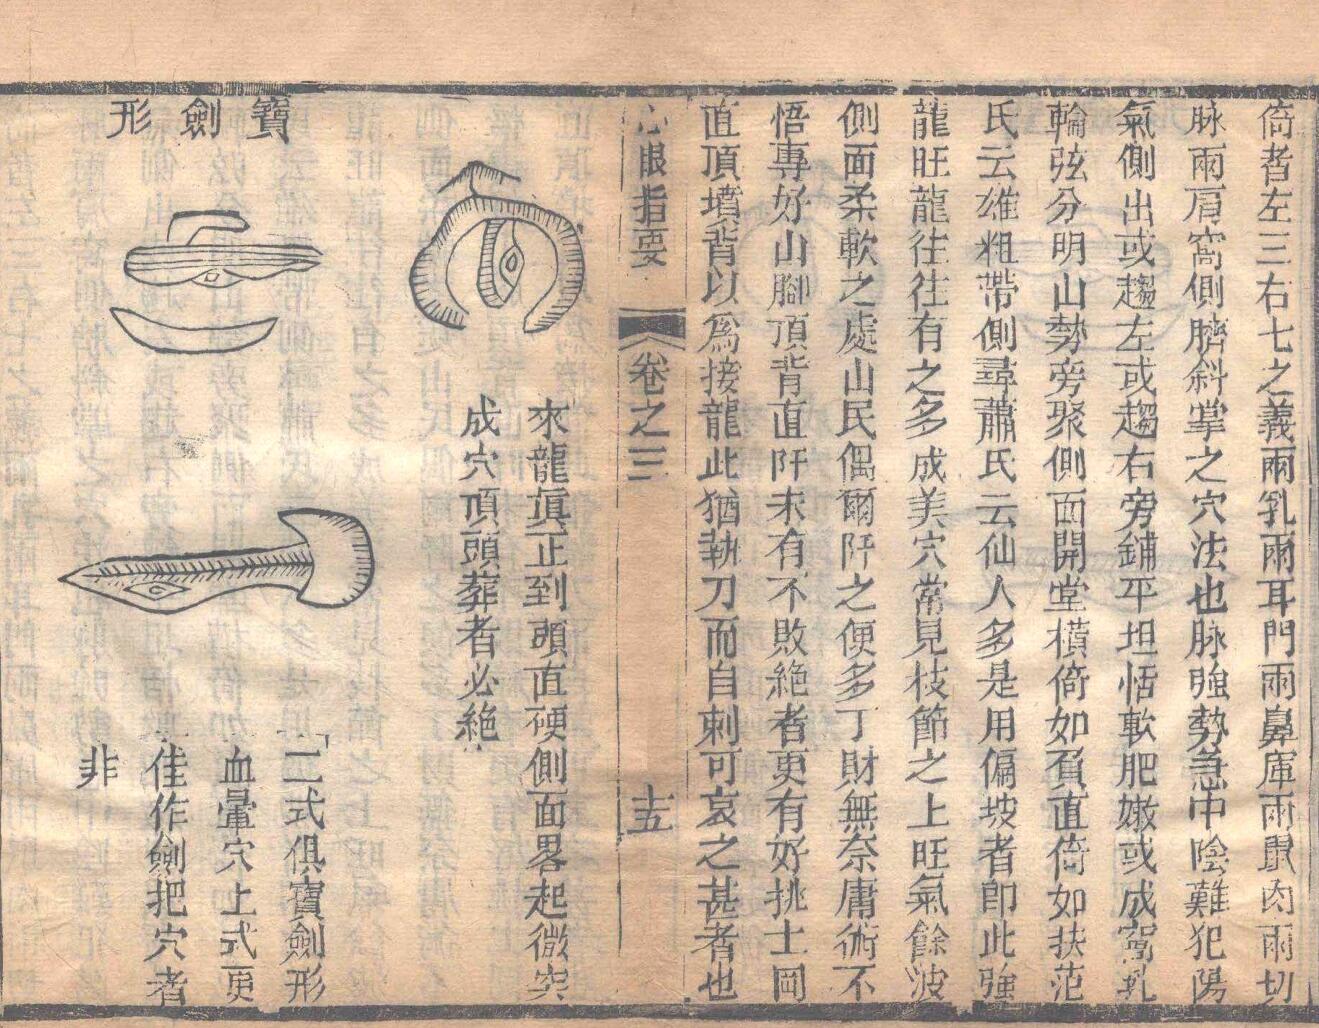 倚者左三右七之義兩乳兩耳門兩鼻庫兩鼠肉兩切
脉兩肩窩側臍斜掌之穴法也脉强勢急中陰難犯陽
氣側出或趨左或趨右旁鋪平坦恬軟肥嫩或成窩乳
輪弦分明山勢旁聚側面開堂橫倚如負直倚如扶范
氏云雄粗帶側尋蕭氏云仙人多是用偏坡者卽此强
龍旺龍往往有之多成美穴常見枝節之上旺氣餘波
側面柔軟之處山民偶爾阡之便多丁財無奈庸術不
悟專好山腳頂背直阡未有不敗絶者更有好挑土岡
直頂墳背以爲接龍此猶執刀而自刺可哀之甚者也
心眼指要
卷之三
十五
來龍眞正到頭直硬側面畧起微突
成穴頂頭葬者必絶
寶劍形
二式俱寶劍形
血暈穴上式更
佳作劍把穴者
非